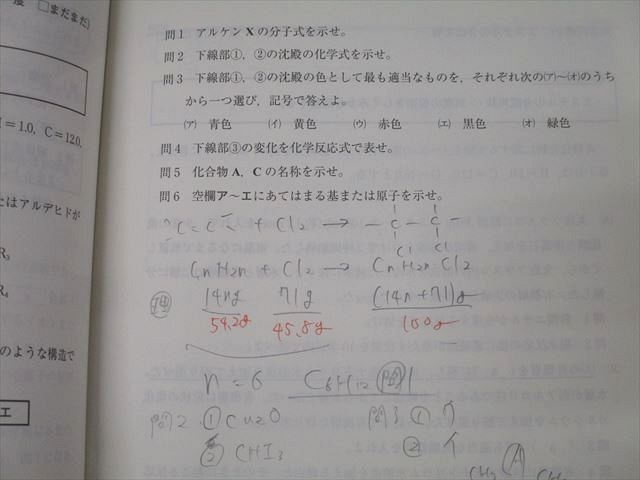 度 □まだまだ)
I = 1.0, C = 12.0,
たはアルデヒドが
R₃
R₄
のような構造で
エ
問1 アルケンXの分子式を示せ。
問2 下線部①,②の沈殿の化学式を示せ。
問3 下線部①,②の沈殿の色として最も適当なものを,それぞれ次の(ア)〜(オ)のうち
から一つ選び,記号で答えよ。
(ア) 青色 (イ) 黄色 (ウ) 赤色 (エ) 黒色 (オ) 緑色
問4 下線部③の変化を化学反応式で表せ。
問5 化合物A,Cの名称を示せ。
問6 空欄ア〜エにあてはまる基または原子を示せ。
C=C + Cl₂ → -C-C-
Cl Cl
CnH2n + Cl₂ → CnH2nCl₂
14ng 71g (14n+71)g
54.2g 45.8g 100g
n=6 C6H12 問1
問2. ① Cu2O 問3 ① ウ
② CHI₃ ② イ
CH₃ A CH₃